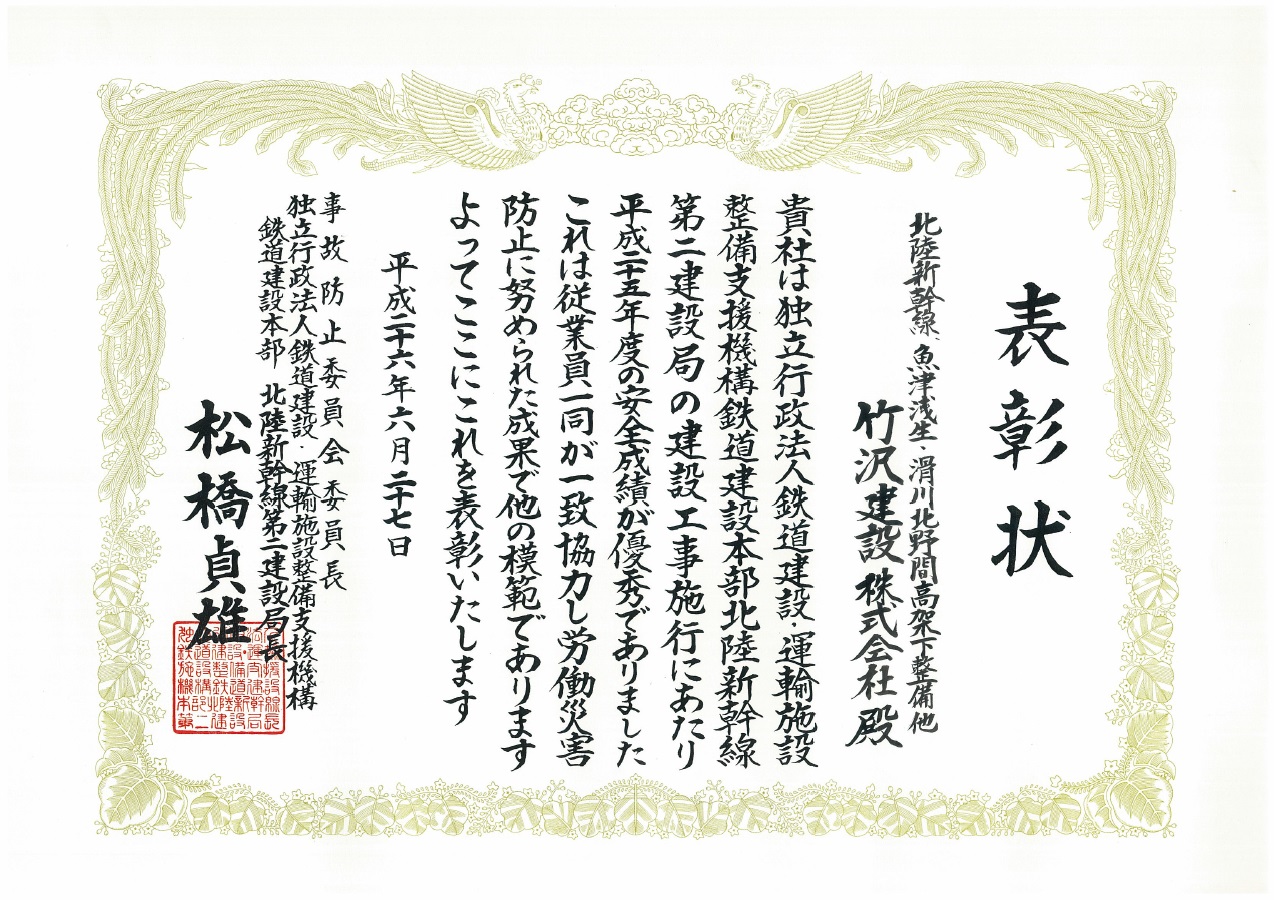 表彰状
北陸新幹線、魚津浅生・滑川北野間高架下整備他
竹沢建設株式会社殿
貴社は独立行政法人鉄道建設・運輸施設
整備支援機構鉄道建設本部北陸新幹線
第二建設局の建設工事施行にあたり
平成二十五年度の安全成績が優秀でありました
これは従業員一同が一致協力し労働災害
防止に努められた成果で他の模範であります
よってここにこれを表彰いたします
平成二十六年六月二十七日
事故防止委員会委員長
独立行政法人鉄道建設・運輸施設整備支援機構
鉄道建設本部 北陸新幹線第二建設局長
松橋貞雄